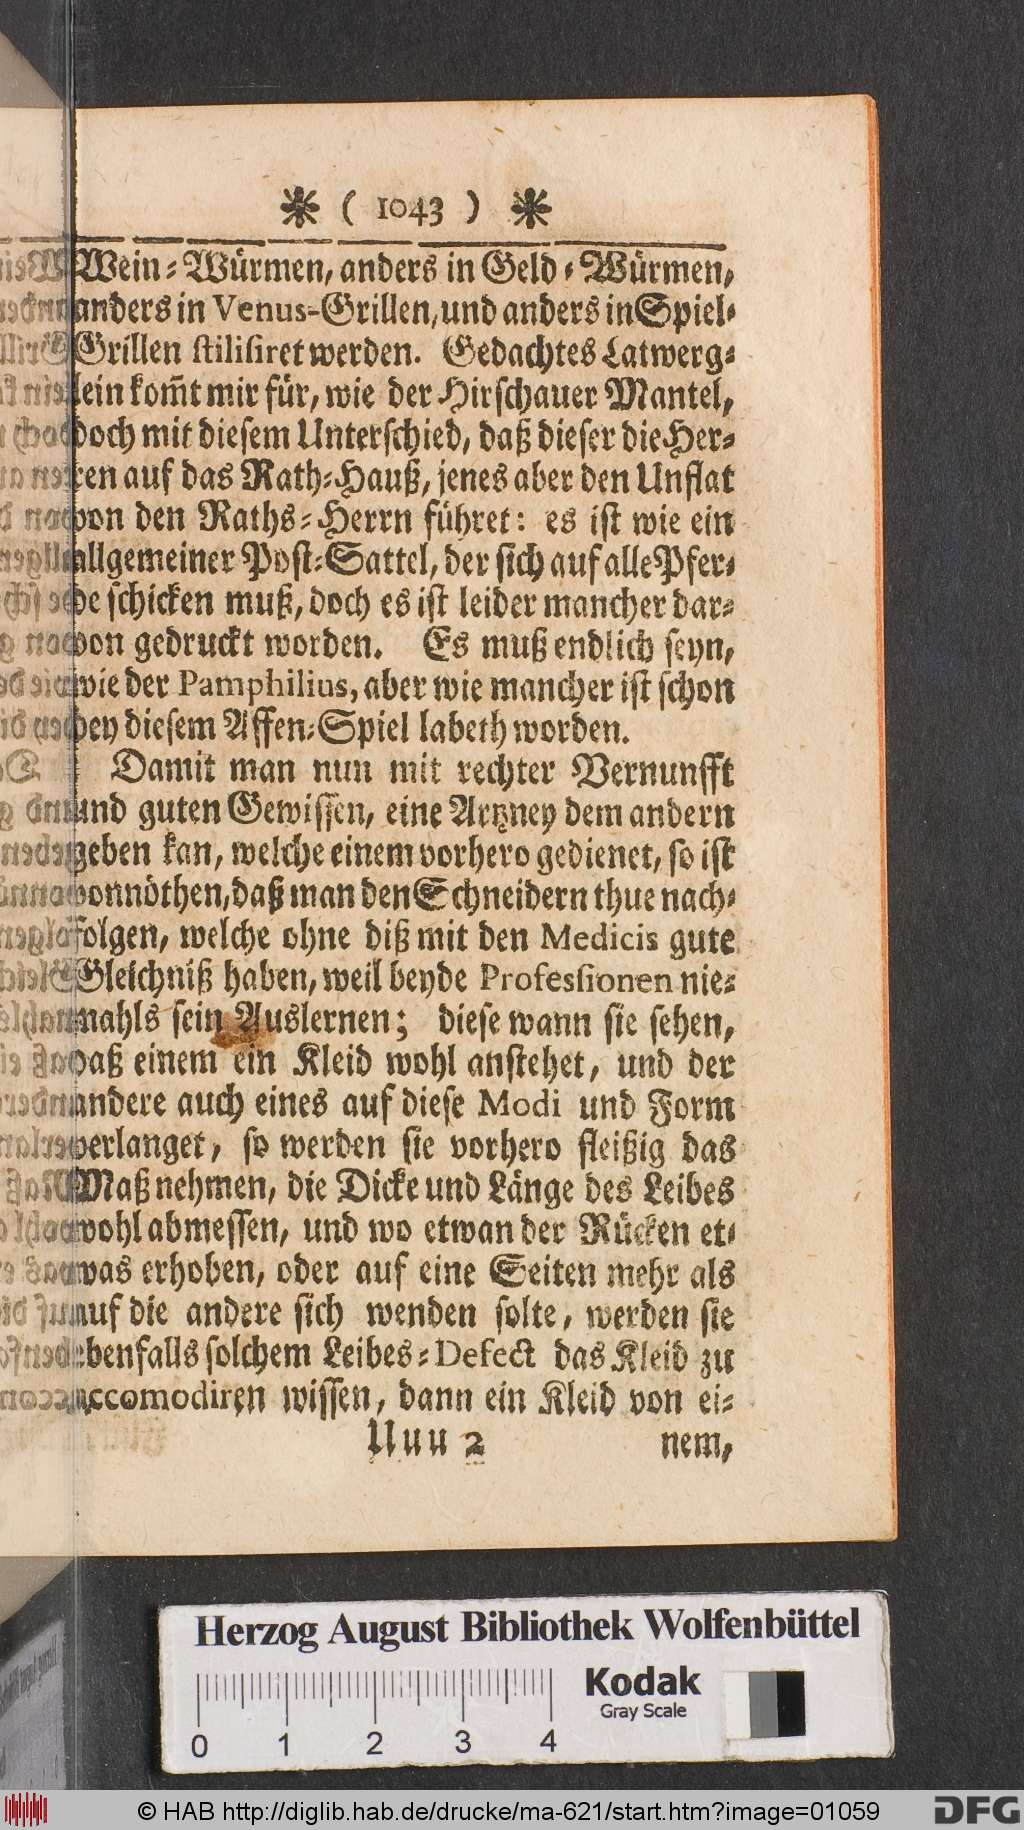 ❋ ( 1043 ) ❋
Wein-Würmen, anders in Geld-Würmen,
anders in Venus-Grillen, und anders in Spiel-
Grillen stilisiret werden. Gedachtes Latwerg-
lein kom̃t mir für, wie der Hirschauer Mantel,
doch mit diesem Unterschied, daß dieser die Her-
ren auf das Rath-Hauß, jenes aber den Unflat
von den Raths-Herrn führet: es ist wie ein
allgemeiner Post-Sattel, der sich auf alle Pfer-
de schicken muß, doch es ist leider mancher dar-
von gedruckt worden. Es muß endlich seyn,
wie der Pamphilius, aber wie mancher ist schon
bey diesem Affen-Spiel labeth worden.
Damit man nun mit rechter Vernunfft
und guten Gewissen, eine Artzney dem andern
geben kan, welche einem vorhero gedienet, so ist
vonnöthen, daß man den Schneidern thue nach-
folgen, welche ohne diß mit den Medicis gute
Gleichniß haben, weil beyde Professionen nie-
mahls sein Auslernen; diese wann sie sehen,
daß einem ein Kleid wohl anstehet, und der
andere auch eines auf diese Modi und Form
verlanget, so werden sie vorhero fleißig das
Maß nehmen, die Dicke und Länge des Leibes
wohl abmessen, und wo etwan der Rücken et-
was erhoben, oder auf eine Seiten mehr als
auf die andere sich wenden solte, werden sie
ebenfalls solchem Leibes-Defect das Kleid zu
accomodiren wissen, dann ein Kleid von ei-
Uuu 2 nem,
Herzog August Bibliothek Wolfenbüttel
Kodak
Gray Scale
0 1 2 3 4
© HAB http://diglib.hab.de/drucke/ma-621/start.htm?image=01059
DFG